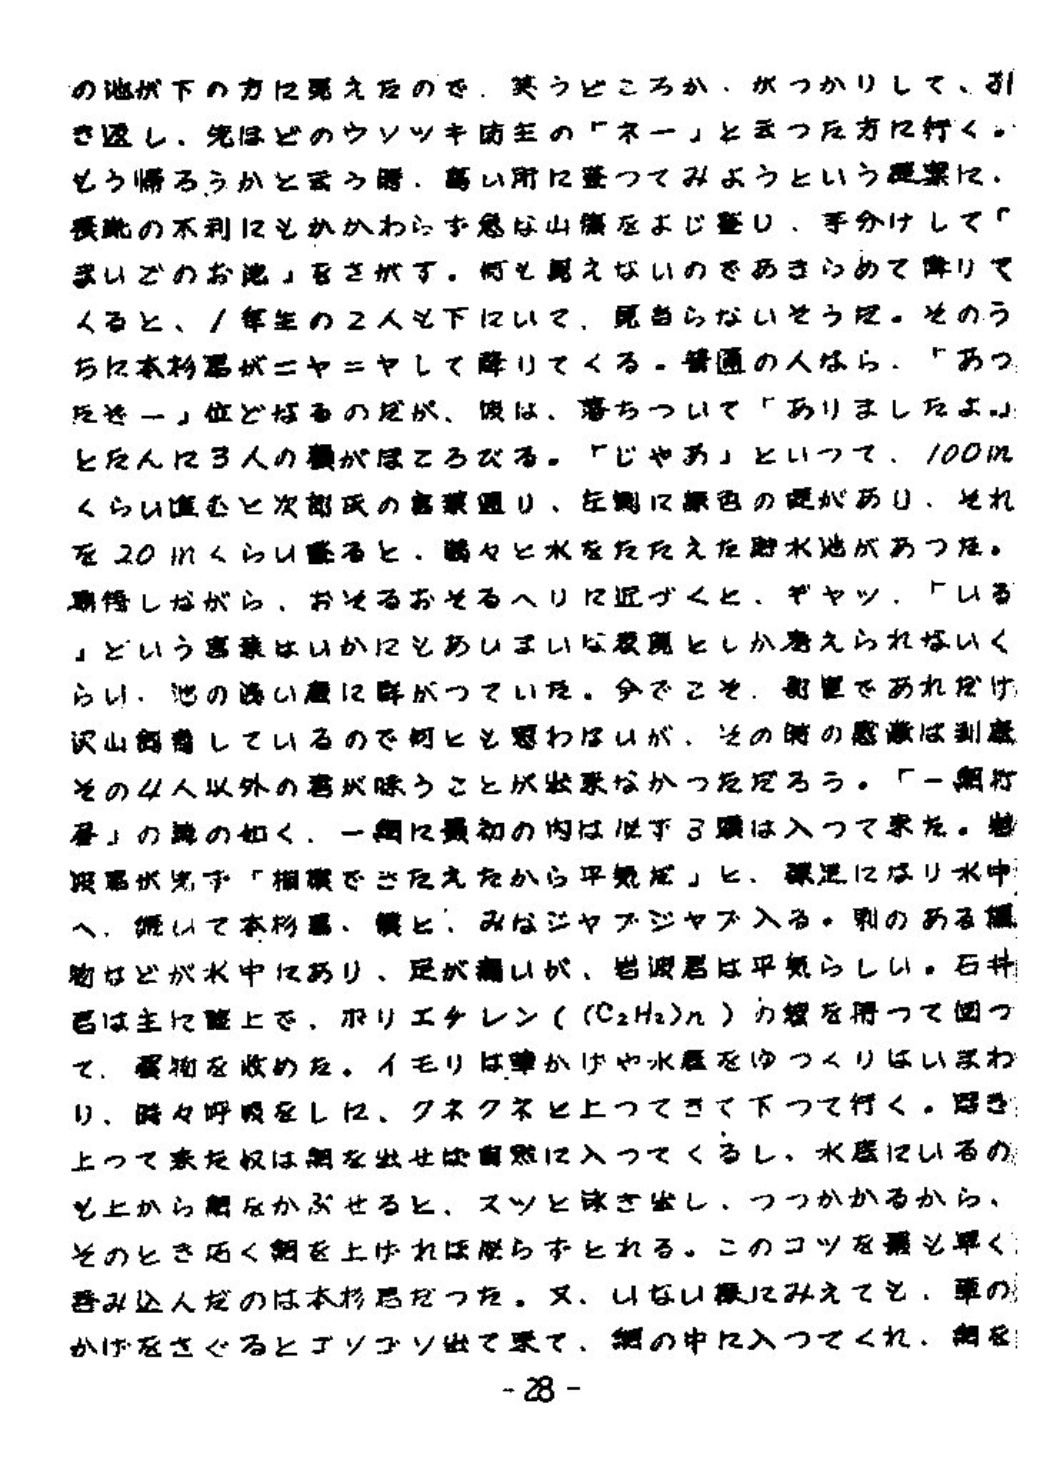 の池が下の方に見えたので．笑うどころか．がつかりして、引
き返し、先ほどのウソツキ坊主の「ネー」と云つた方に行く。
もう帰ろうかと云う時．高い所に登つてみようという提案に．
長靴の不利にもかかわらず急な山腹をよじ登り、手分けして「
まいごのお池」をさがす。何も見えないのであきらめて降りて
くると、1年生の2人も下にいて、見当らないそうだ。そのう
ちに本杉君がニヤニヤして降りてくる。普通の人なら、「あつ
たぞー」位どなるのだが、彼は、落ちついて「ありましたよ。」
とたんに3人の顔がほころびる。「じやあ」といつて、100m
くらい進むと次郎氏の言葉通り、左側に緑色の堤があり、それ
を20mくらい登ると、満々と水をたたえた貯水池があつた。
期待しながら、おそるおそるヘリに近づくと、ギヤツ、「いる
」という言葉はいかにもあいまいな表現としか考えられないく
らい、池の浅い底に群がつていた。今でこそ、教室であれだけ
沢山飼育しているので何とも思わないが、その時の感激は到底
その4人以外の者が味うことが出来なかつただろう。「一網打
尽」の諺の如く、一網に最初の内は必ず3頭は入つて来た。岩
波君が先ず「相模できたえたから平気だ」と、裸足になり水中
へ、続いて本杉君、僕と、みなジヤブジヤブ入る。刺のある植
物などが水中にあり、足が痛いが、岩波君は平気らしい。石井
君は主に陸上で、ポリエチレン((C₂H₂)n)の袋を持つて回つ
て、獲物を収めた。イモリは草かげや水底をゆつくりはいまわ
り、時々呼吸をしに、クネクネと上つてきて下つて行く。浮き
上つて来た奴は網を出せば自然に入つてくるし、水底にいるの
も上から網をかぶせると、スツと泳ぎ出し、つつかかるから、
そのとき巧く網を上げれば必らずとれる。このコツを最も早く
呑み込んだのは本杉君だつた。又、いない様にみえても、草の
かげをさぐるとゴソゴソ出て来て、網の中に入つてくれ、網を
-28-